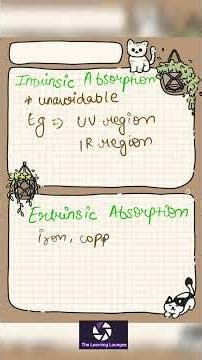 Intrinsic Absorption
* unavoidable
Eg ⇒ UV region
IR region
Extrinsic Absorption
iron, copp
The Learning Lounge